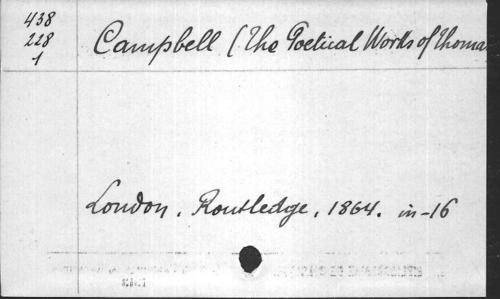 438
228
1
Campbell (The Poetical Works of Thoma
London, Routledge, 1864. in-16